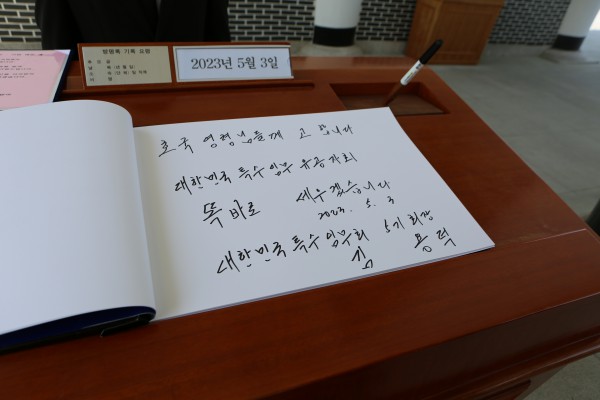 방명록 기록 요령
2023년 5월 3일
호국 영령님들께 고 합니다
대한민국 특수임무 유공자회
똑 바로 세우겠습니다
2023. 5. 3
대한민국 특수임무회 5기 회장
김 용 덕